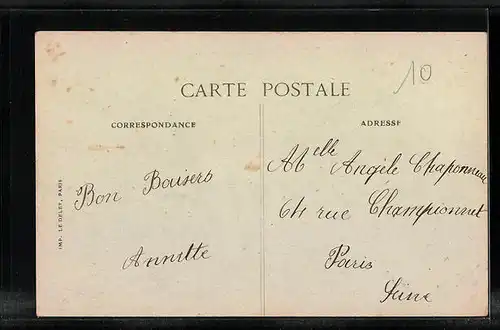 10
CARTE POSTALE
CORRESPONDANCE
ADRESSE
Bon Baisers
Annette
Melle Angèle Chaponneau
64 rue Championnet
Paris
Seine
IMP. LE DELEY, PARIS